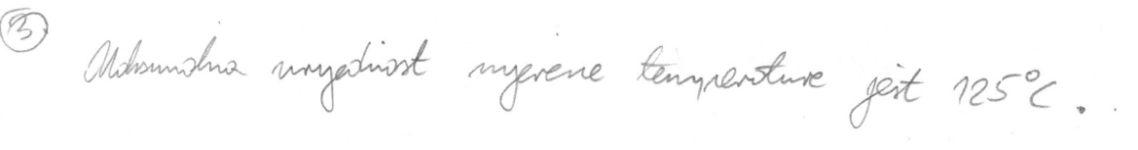 ③ Maksimalna vrijednost mjerene temperature jest 125°C.